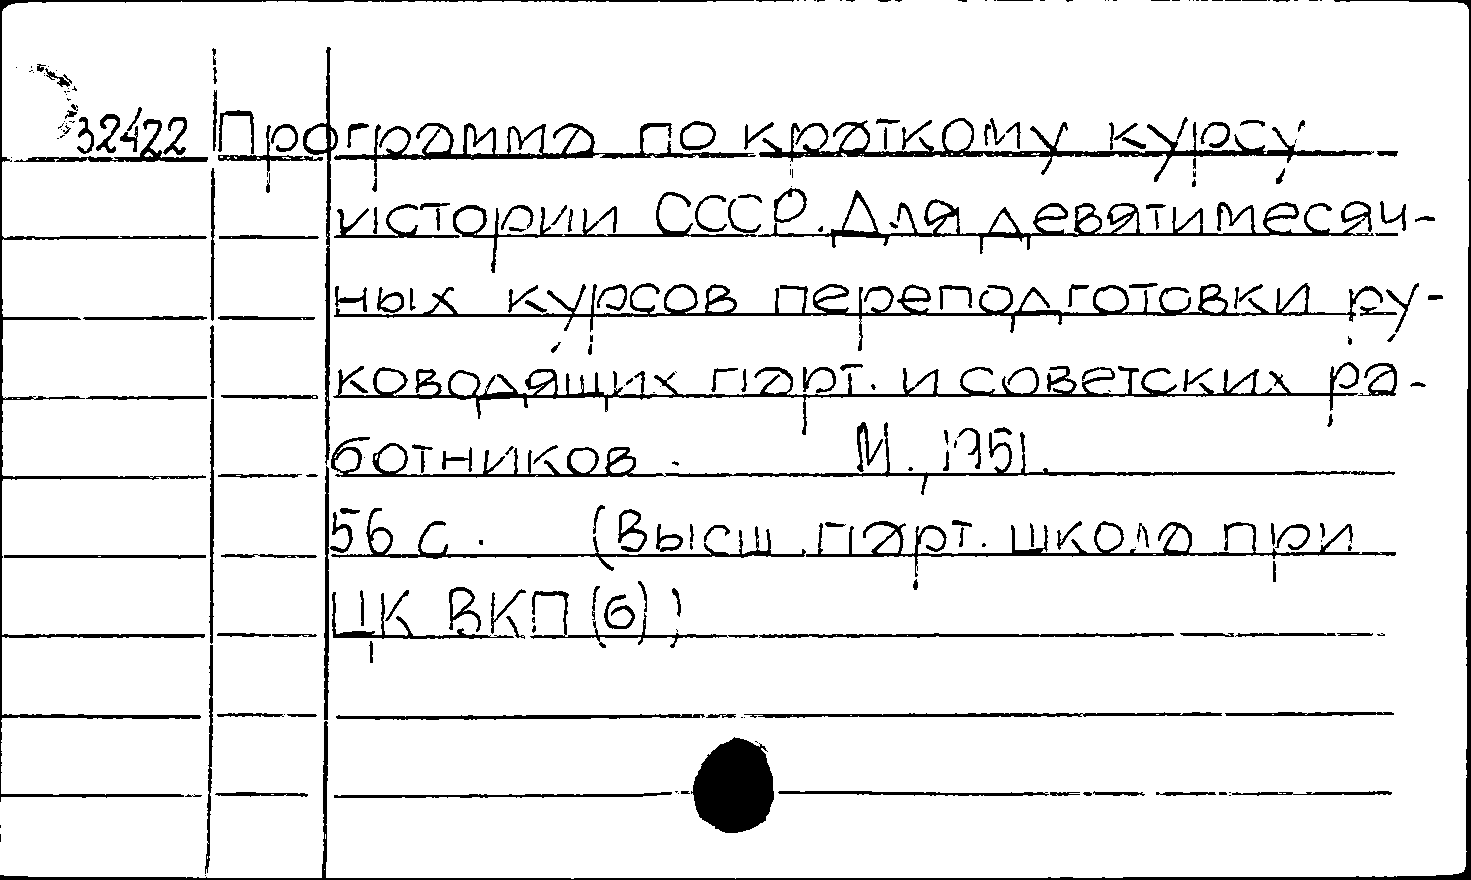 32422 Программа по краткому курсу
истории СССР. Для девятимесяч-
ных курсов переподготовки ру-
ководящих парт. и советских ра-
ботников. М., 1951.
56 с. (Высш. парт. школа при
ЦК ВКП(б))